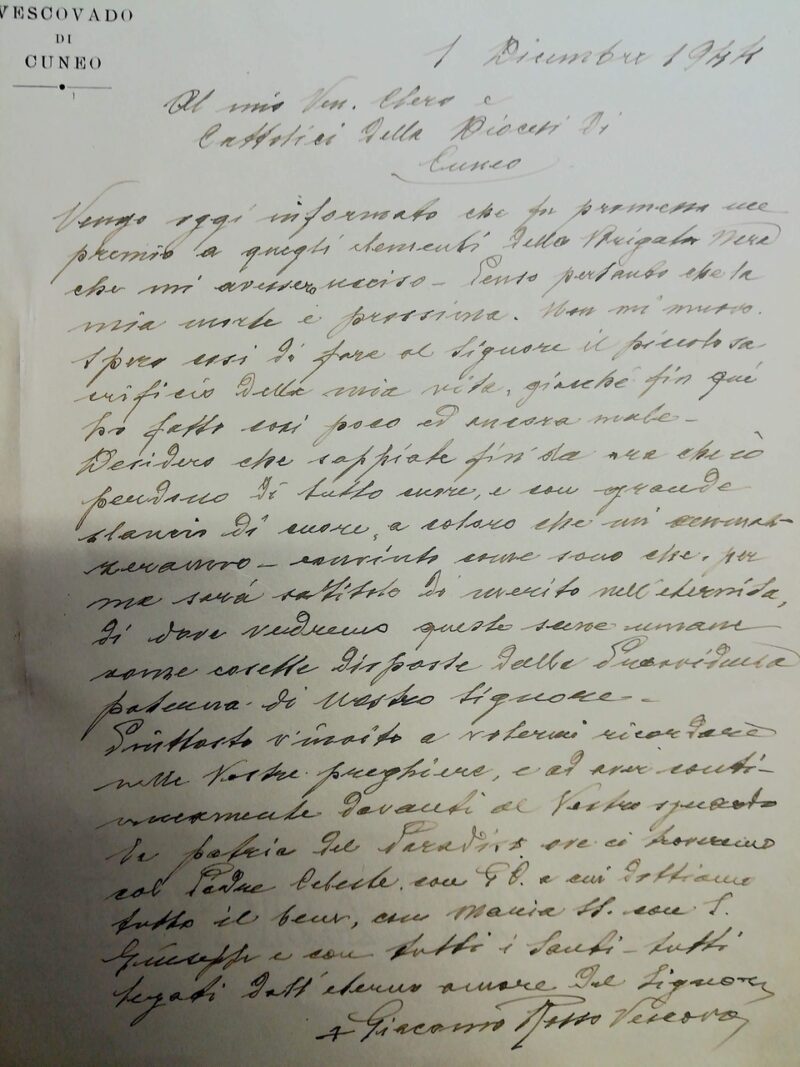 VESCOVADO
DI
CUNEO
1 Dicembre 1944
Al mio Ven. Clero e
Cattolici della Diocesi di
Cuneo
Vengo oggi informato che fu promesso
premio a quegli elementi della Brigata Nera
che mi avessero ucciso - Penso pertanto che la
mia morte è prossima. Non mi muovo.
Spero così di fare al Signore il piccolo sa
crificio della mia vita, giacché fin qui
ho fatto così poco ed ancora male -
Desidero che sappiate fin da ora che io
perdono di tutto cuore, e con grande
slancio di cuore, a coloro che mi ammaz-
zeranno - convinto come sono che, per
me sarà titolo di merito nell'eternità,
di dove vedremo queste umane
cosette disposte dalla Provvidenza
di Nostro Signore -
Piuttosto v'invito a volermi ricordare
nelle Vostre preghiere, e ad aver conti-
nuamente davanti al Vostro sguardo
la patria del Paradiso ove ci troveremo
col Padre Celeste, con G.C. a cui dobbiamo
tutto il bene, con Maria SS. con S.
Giuseppe e con tutti i Santi - tutti
legati dall'eterno amore del Signore
+ Giacomo Rosso Vescovo